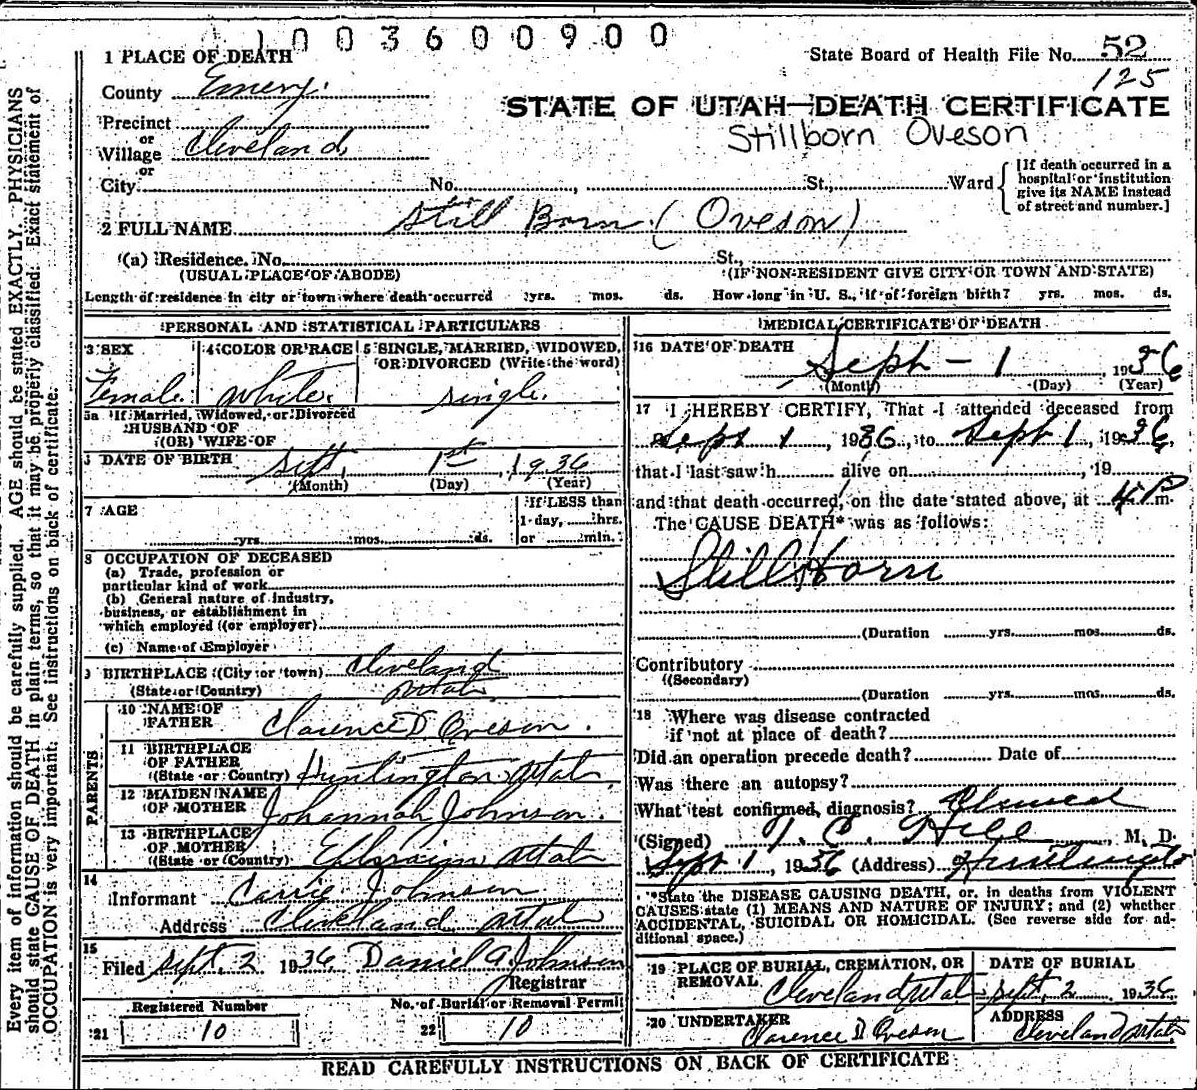 1003600900
1 PLACE OF DEATH
State Board of Health File No. 52
125
County Emery.
STATE OF UTAH—DEATH CERTIFICATE
Precinct
or
Village Cleveland,
or
Stillborn Oveson
City No. , St., Ward
[If death occurred in a
hospital or institution
give its NAME instead
of street and number.]
2 FULL NAME Still Born (Oveson)
(a) Residence. No. St.,
(USUAL PLACE OF ABODE) (IF NON-RESIDENT GIVE CITY OR TOWN AND STATE)
Length of residence in city or town where death occurred yrs. mos. ds. How long in U. S., if of foreign birth? yrs. mos. ds.
PERSONAL AND STATISTICAL PARTICULARS
3 SEX
Female
4 COLOR OR RACE
white
5 SINGLE, MARRIED, WIDOWED,
OR DIVORCED (Write the word)
single.
5a If Married, Widowed, or Divorced
HUSBAND OF
(OR) WIFE OF
DATE OF BIRTH Sept. 1st, 1936
(Month) (Day) (Year)
7 AGE
yrs. mos. ds.
If LESS than
1 day, hrs.
or min.
8 OCCUPATION OF DECEASED
(a) Trade, profession or
particular kind of work
(b) General nature of industry,
business, or establishment in
which employed (or employer)
(c) Name of Employer
9 BIRTHPLACE (City or town) Cleveland
(State or Country) Utah
PARENTS
10 NAME OF
FATHER Clarence D. Oveson.
11 BIRTHPLACE
OF FATHER
(State or Country) Huntington Utah
12 MAIDEN NAME
OF MOTHER Johannah Johnson.
13 BIRTHPLACE
OF MOTHER
(State or Country) Ephraim Utah
14
Informant Carrie Johnson
Address Cleveland Utah
15
Filed Sept. 2 1936, Daniel A. Johnson
Registrar
Registered Number
21 10
No. of Burial or Removal Permit
22 10
MEDICAL CERTIFICATE OF DEATH
16 DATE OF DEATH
Sept - 1, 1936
(Month) (Day) (Year)
17 I HEREBY CERTIFY, That I attended deceased from
Sept 1, 1936, to Sept 1, 1936,
that I last saw h alive on , 19
and that death occurred, on the date stated above, at 4 P m.
The CAUSE DEATH* was as follows:
Stillborn
(Duration yrs. mos. ds.
Contributory
(Secondary)
(Duration yrs. mos. ds.
18 Where was disease contracted
if not at place of death?
Did an operation precede death? Date of
Was there an autopsy?
What test confirmed diagnosis? Clinical
(Signed) T. C. Hill, M. D.
Sept 1, 1936 (Address) Huntington
*State the DISEASE CAUSING DEATH, or, in deaths from VIOLENT
CAUSES state (1) MEANS AND NATURE OF INJURY; and (2) whether
ACCIDENTAL, SUICIDAL OR HOMICIDAL. (See reverse side for ad-
ditional space.)
19 PLACE OF BURIAL, CREMATION, OR
REMOVAL
Cleveland Utah
DATE OF BURIAL
Sept. 2 1936
20 UNDERTAKER
Clarence D Oveson
ADDRESS
Cleveland Utah
READ CAREFULLY INSTRUCTIONS ON BACK OF CERTIFICATE
Every item of information should be carefully supplied. AGE should be stated EXACTLY. PHYSICIANS
should state CAUSE OF DEATH in plain terms, so that it may be properly classified. Exact statement of
OCCUPATION is very important. See instructions on back of certificate.